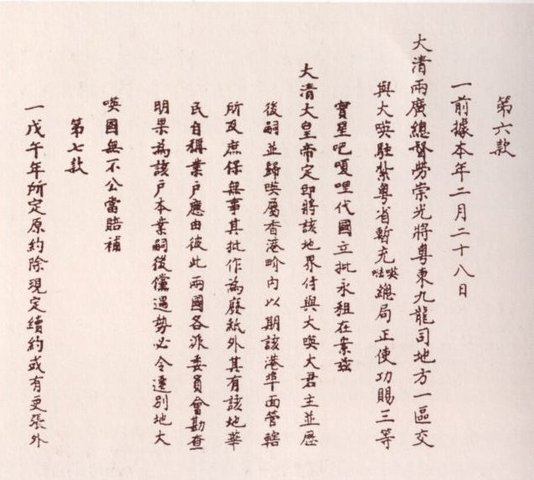 第六款
一前據本年二月二十八日
大清兩廣總督勞崇光將粵東九龍司地方一區交
與大㗲駐紮粵省暫充㗲㖔總局正使功賜三等
寶星吧嗄哩代國立批永租在案茲
大清大皇帝定即將該地界付與大㗲大君主並歷
後嗣並歸㗲屬香港界內以期該港埠面管轄
所及庶保無事其批作為廢紙外其有該地華
民自稱業戶應由彼此兩國各派委員會勘查
明果為該戶本業嗣後儻遇勢必令遷別地大
㗲國無不公當賠補
第七款
一戊午年所定原約除現定續約或有更張外